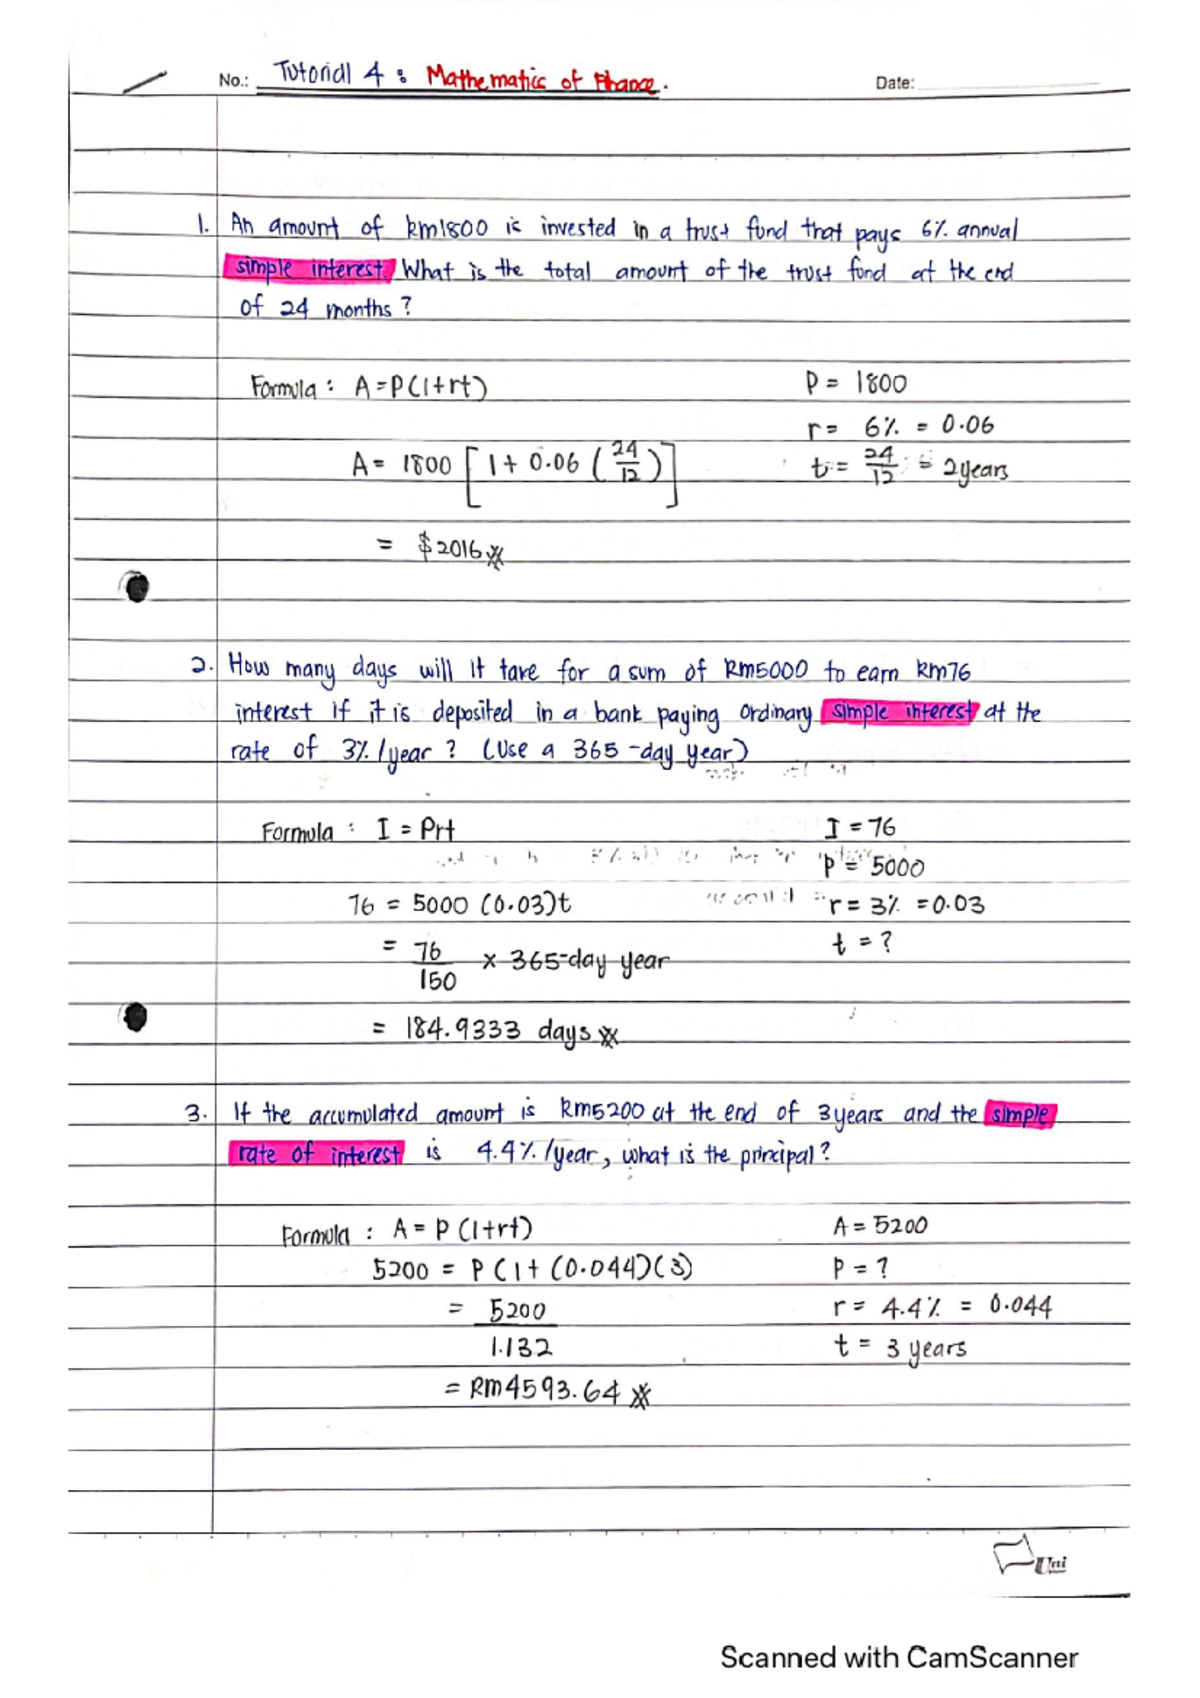 No.: Tutorial 4 : Mathematics of Finance.
Date:
1. An amount of RM1800 is invested in a trust fund that pays 6% annual
simple interest. What is the total amount of the trust fund at the end
of 24 months ?
Formula : A=P(1+rt)
P = 1800
r = 6% = 0.06
A = 1800 [ 1 + 0.06 ( 24/12 ) ]
t = 24/12 = 2years
= $2016
2. How many days will it take for a sum of RM5000 to earn RM76
interest if it is deposited in a bank paying ordinary simple interest at the
rate of 3% /year ? (Use a 365-day year)
Formula : I = Prt
I = 76
P = 5000
76 = 5000 (0.03)t
r = 3% = 0.03
t = ?
= 76/150 x 365-day year
= 184.9333 days
3. If the accumulated amount is RM5200 at the end of 3years and the simple
rate of interest is 4.4% /year, what is the principal?
Formula : A = P (1+rt)
A = 5200
5200 = P (1 + (0.044)(3)
P = ?
= 5200
r = 4.4% = 0.044
1.132
t = 3 years
= RM4593.64
Uni
Scanned with CamScanner